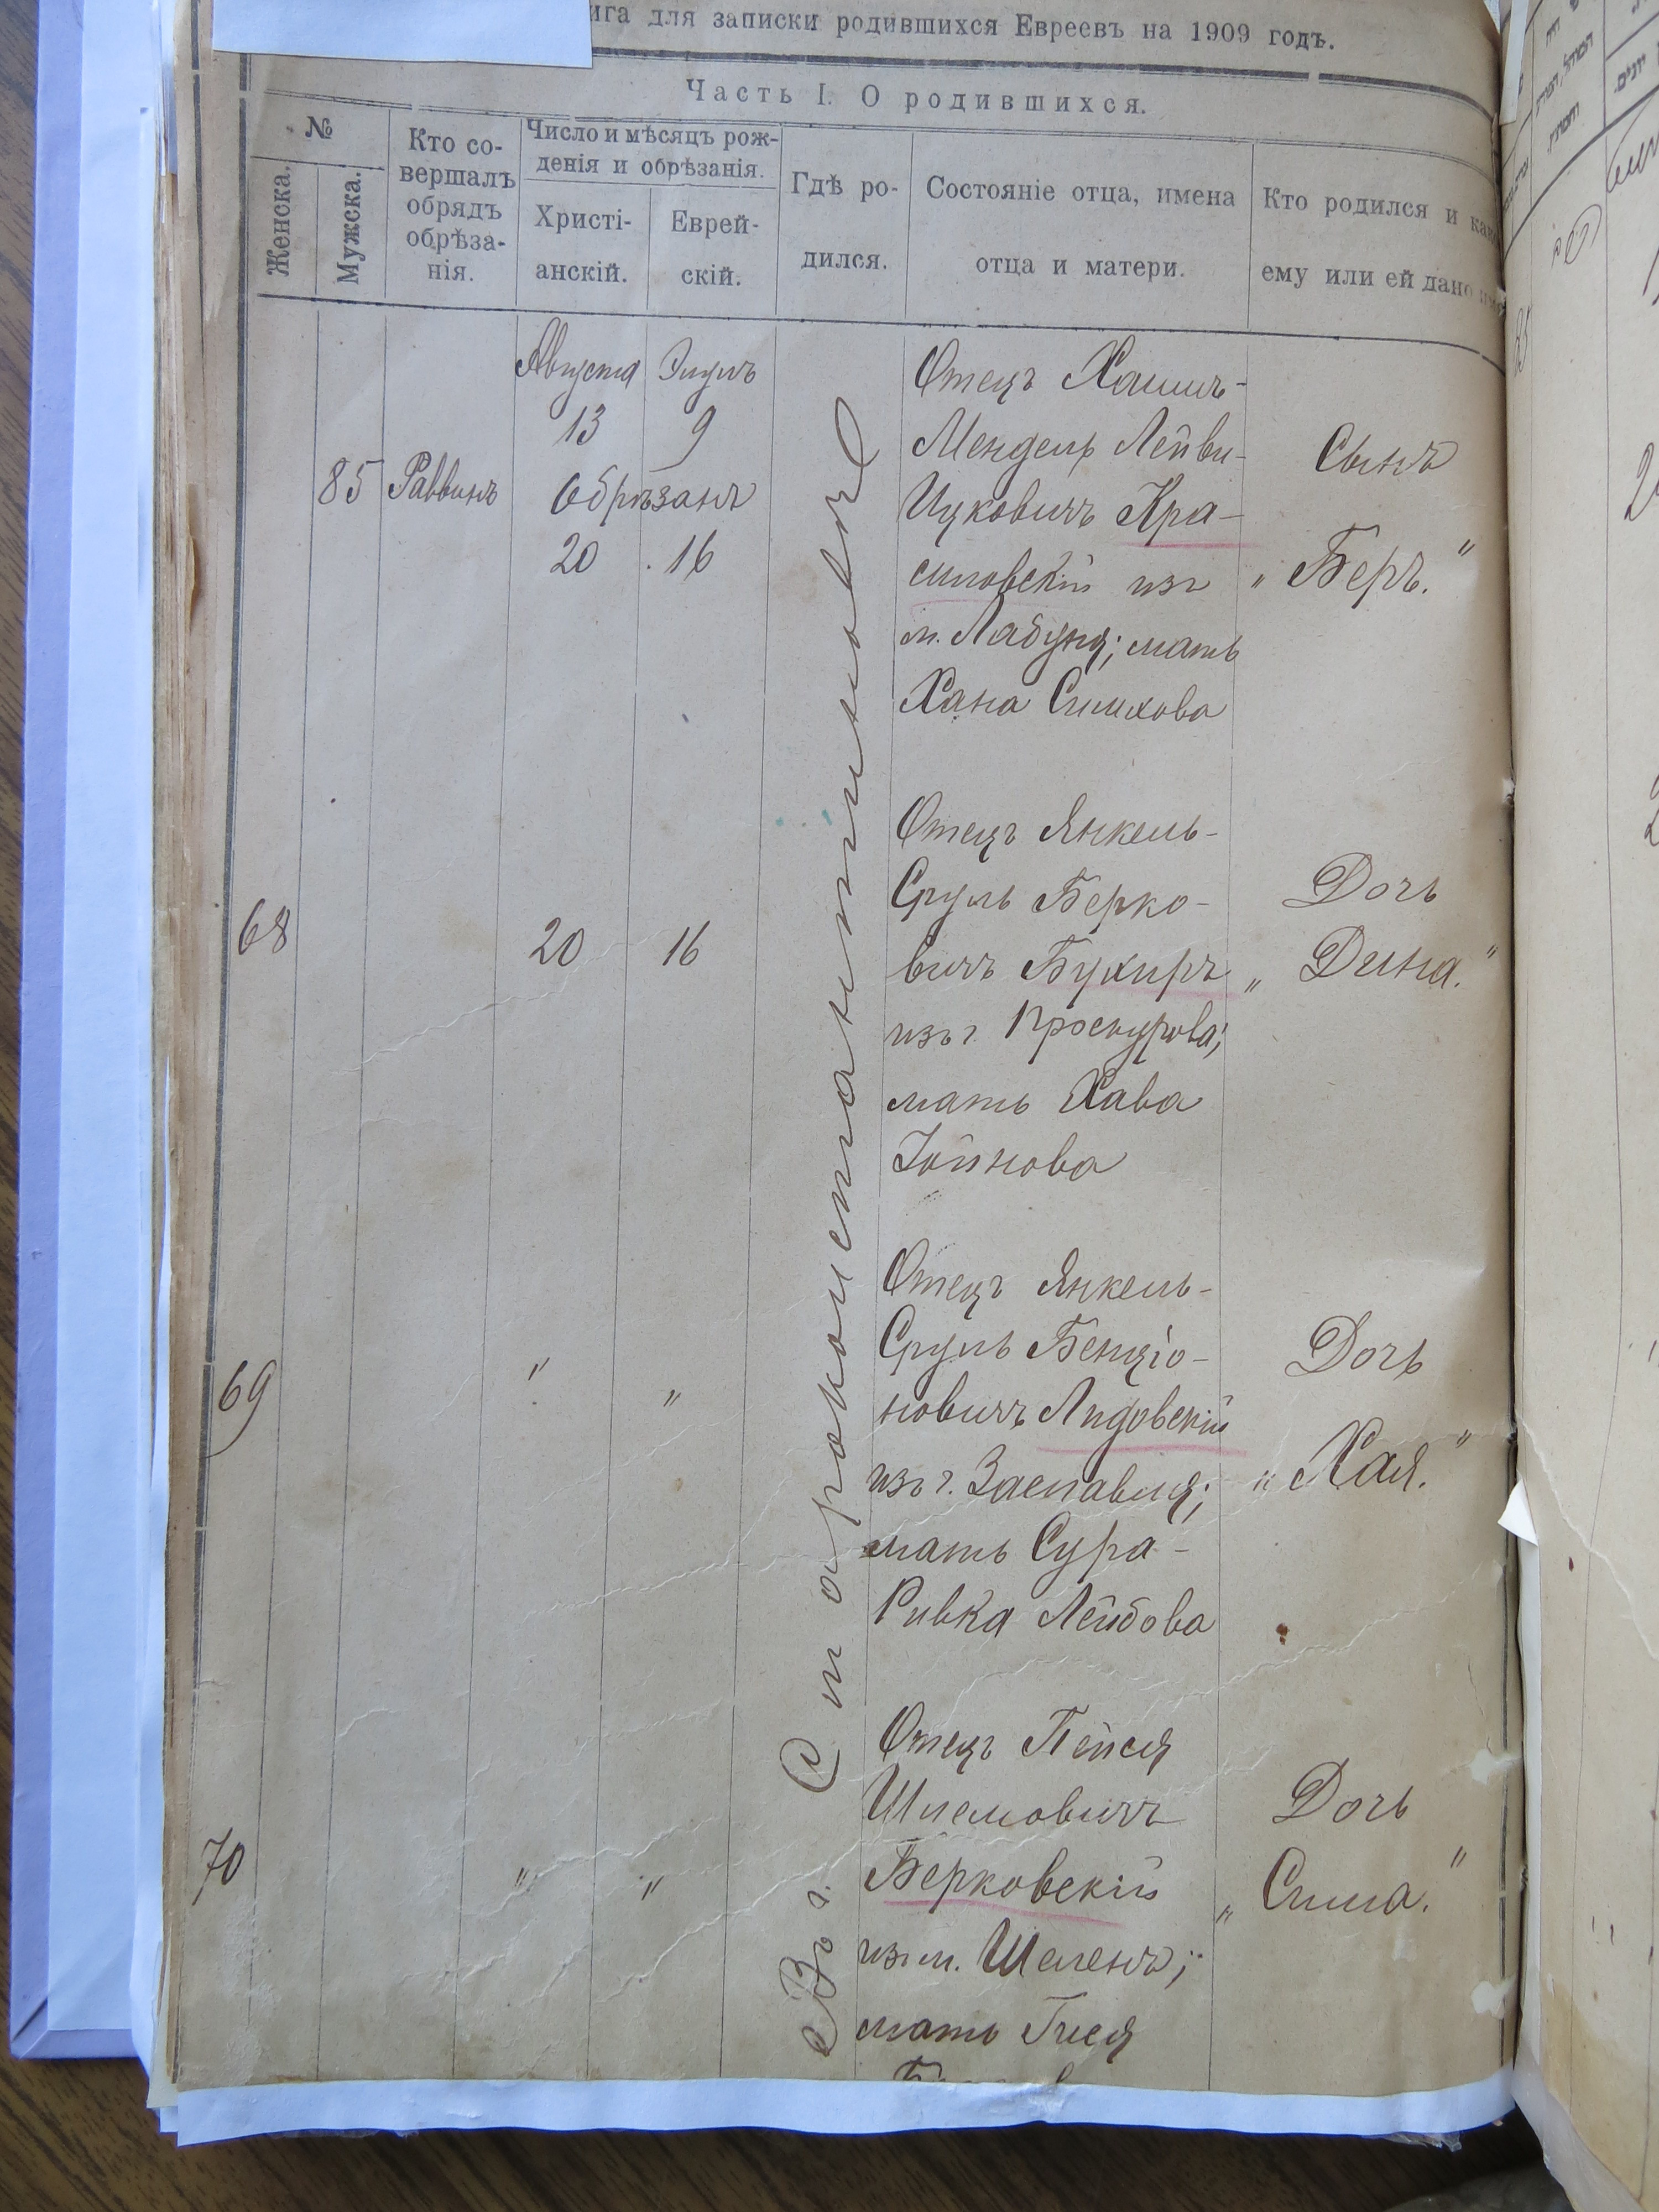 ига для записки родившихся Евреевъ на 1909 годъ.
Часть I. О родившихся.
№
Женска.
Мужска.
Кто со-
вершалъ
обрядъ
обрѣза-
нія.
Число и мѣсяцъ рож-
денія и обрѣзанія.
Христі-
анскій.
Еврей-
скій.
Гдѣ ро-
дился.
Состояніе отца, имена
отца и матери.
Кто родился и как
ему или ей дано
Августа Элулъ
13 9
85 Раввинъ Обрѣзанъ
20 16
Отецъ Хаимъ-
Мендель Лейви-
Ицковичъ Кра-
силовскій изъ
м. Лабуня; мать
Хана Симхова
Сынъ
„Беръ."
Въ г. Староконстантиновѣ
68 20 16
Отецъ Янкель-
Сруль Берко-
вичъ Бухиръ
изъ г. Проскурова;
мать Хава
Іойнова
Дочь
„Дина."
69 " "
Отецъ Янкель-
Сруль Бенціо-
новичъ Лидовскій
изъ г. Заславля;
мать Сура-
Ривка Лейбова
Дочь
„Хая."
70 " "
Отецъ Пейся
Шлемовичъ
Берковскій
изъ м.
мать Гися
Дочь
„Сима."